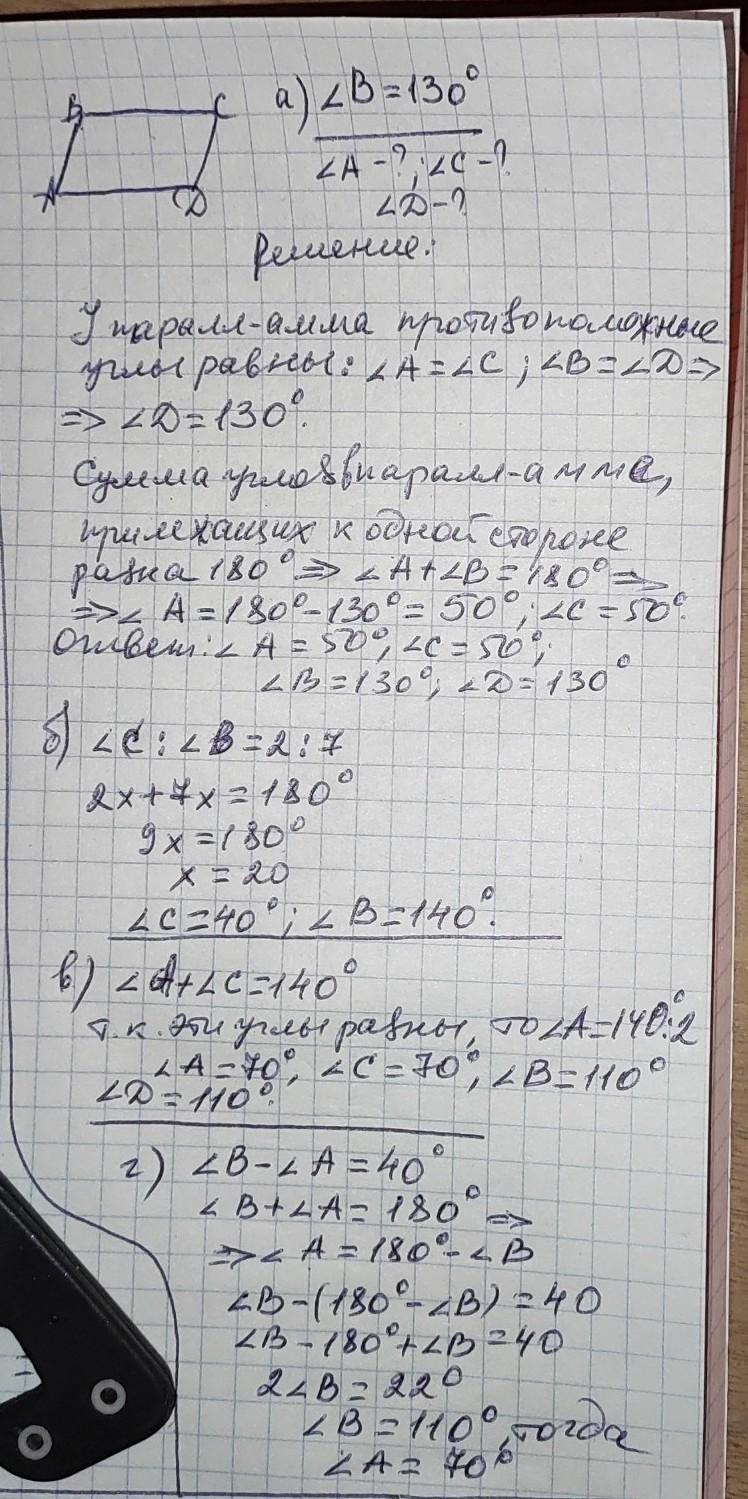 B C
A D
а) ∠B = 130°
∠A - ?; ∠C - ?
∠D - ?
Решение:
У паралл-амма противоположные
углы равны: ∠A = ∠C ; ∠B = ∠D ⇒
⇒ ∠D = 130°.
Сумма углов в паралл-амме,
прилежащих к одной стороне
равна 180° ⇒ ∠A + ∠B = 180° ⇒
⇒ ∠A = 180° - 130° = 50°; ∠C = 50°.
Ответ: ∠A = 50°, ∠C = 50°;
∠B = 130°; ∠D = 130°
б) ∠C : ∠B = 2 : 7
2x + 7x = 180°
9x = 180°
x = 20
∠C = 40°; ∠B = 140°.
в) ∠A + ∠C = 140°
т.к. эти углы равны, то ∠A = 140° : 2
∠A = 70°, ∠C = 70°, ∠B = 110°
∠D = 110°.
г) ∠B - ∠A = 40°
∠B + ∠A = 180° ⇒
⇒ ∠A = 180° - ∠B
∠B - (180° - ∠B) = 40
∠B - 180° + ∠B = 40
2∠B = 220
∠B = 110°, тогда
∠A = 70°